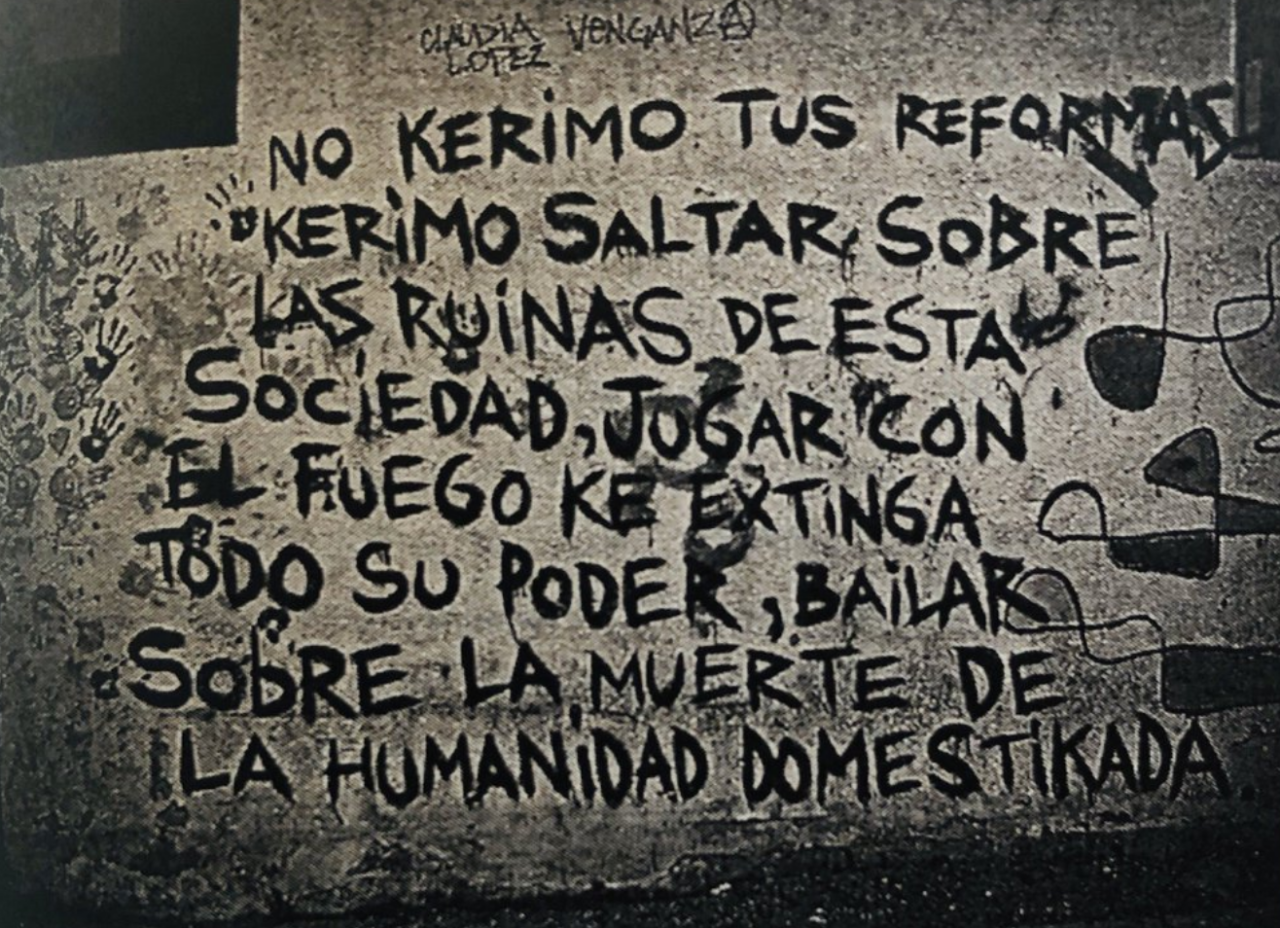 CLAUDIA VENGANZA
LOPEZ
NO KERiMO TUS REFORMAS
KERiMO SALTAR SOBRE
LAS RUiNAS DE ESTA
SOCiEDAD, JUGAR CON
EL FUEGO KE EXTiNGA
TODO SU PODER, BAiLAR
SObRE LA MUERTE DE
LA HUMANiDAD DOMESTiKADA